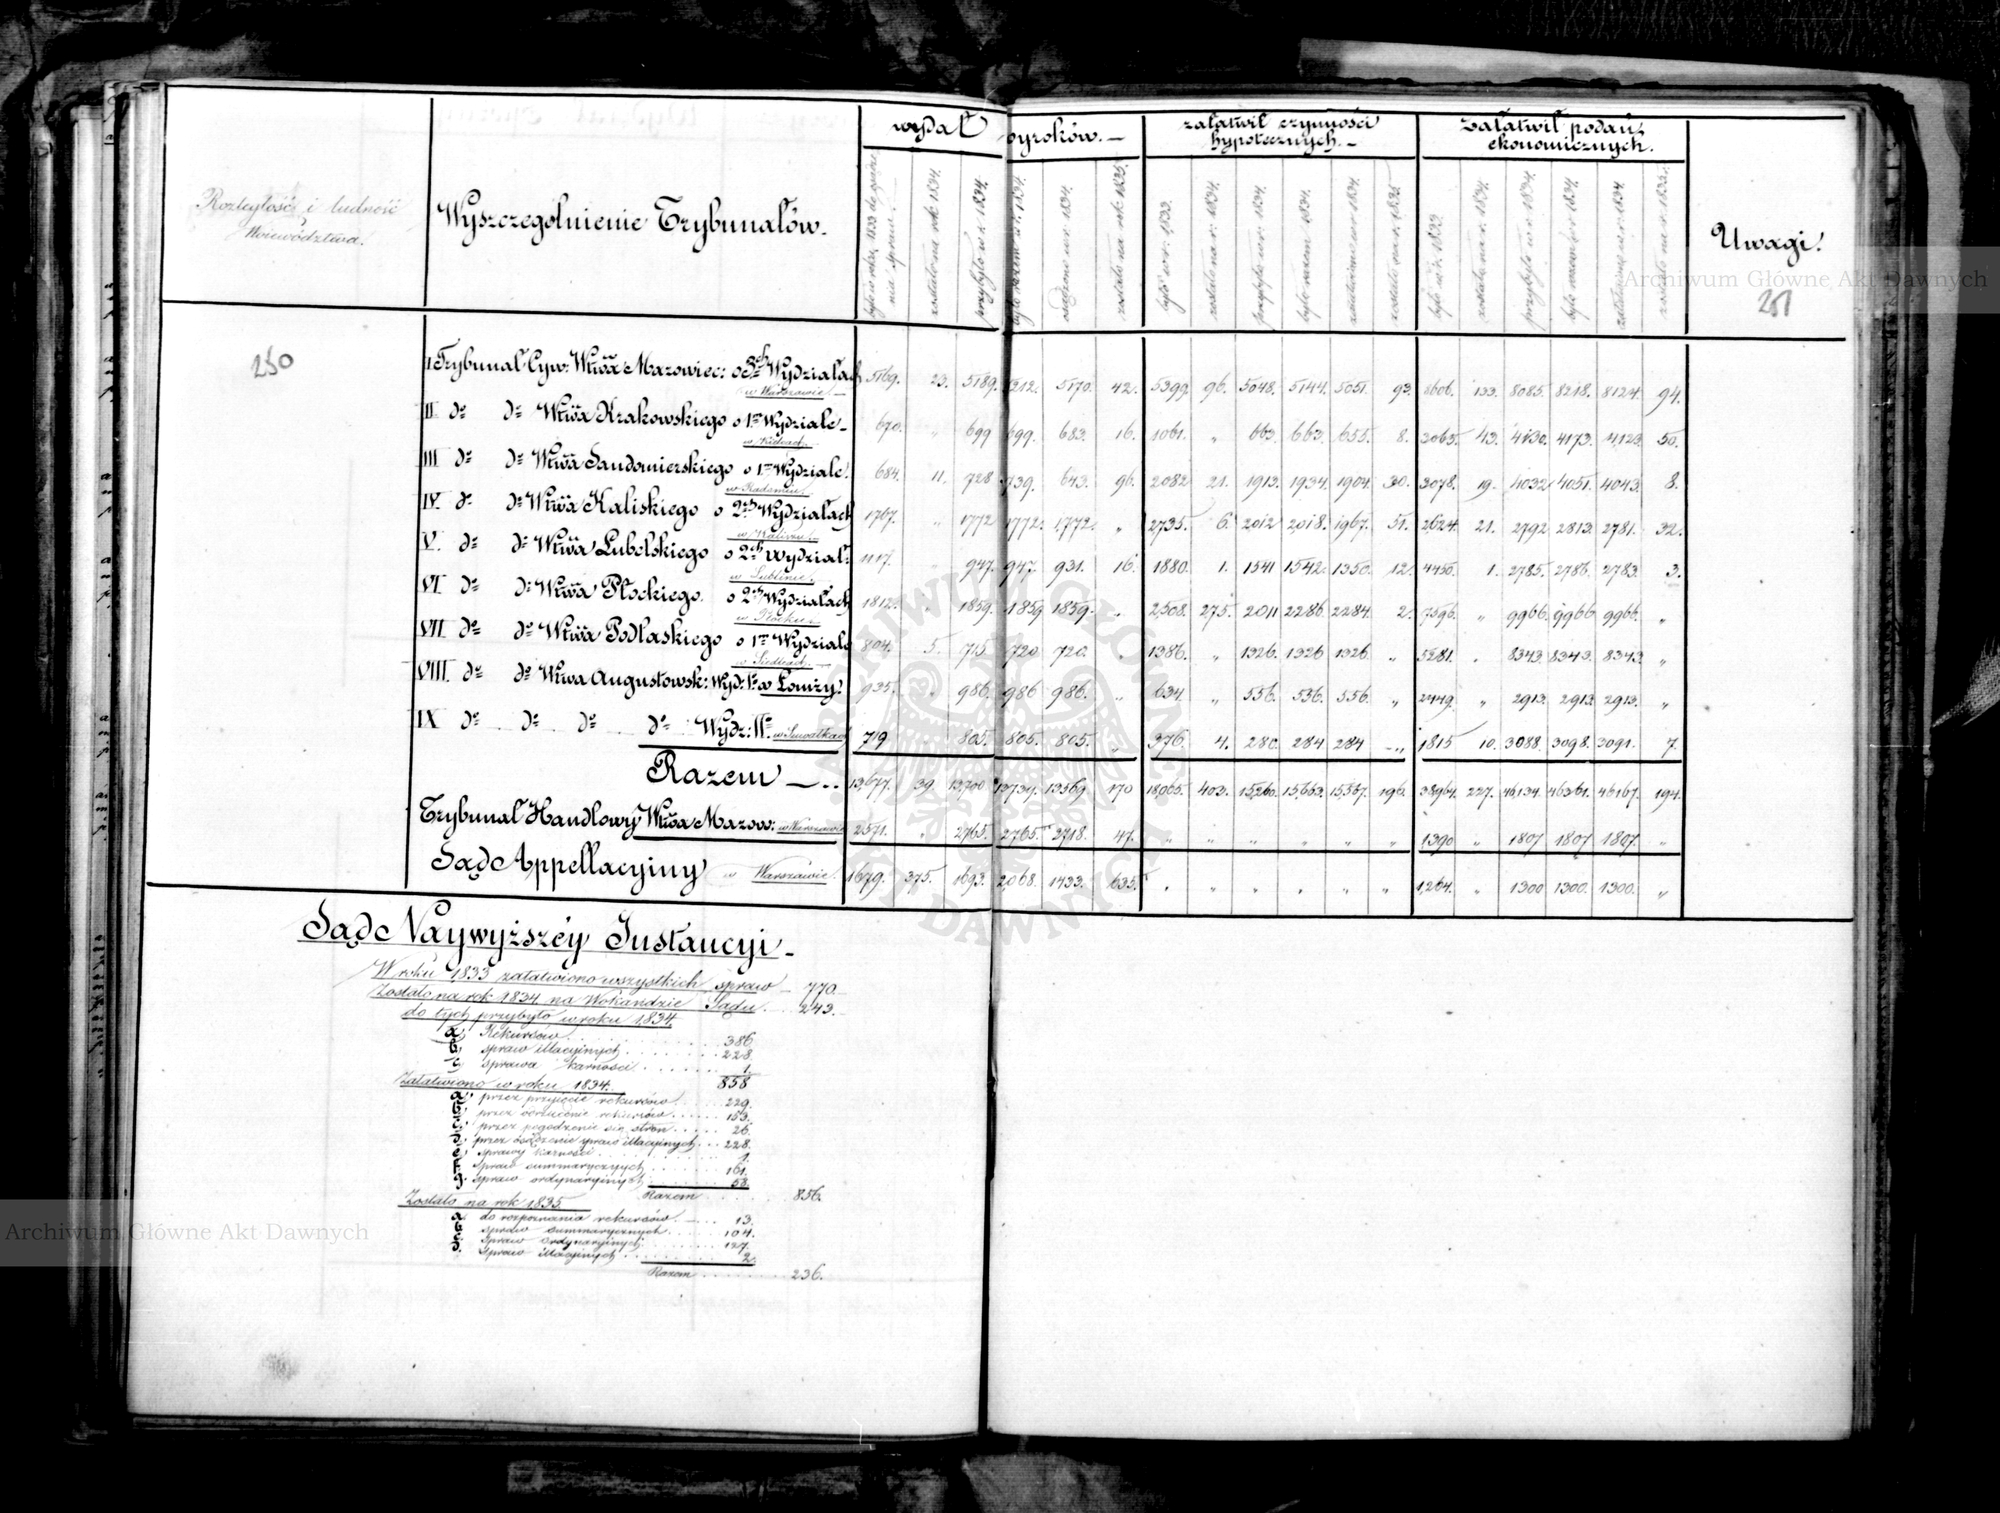 wydał wyroków. —
załatwił czynności hypotecznych. —
Załatwił podań ekonomicznych.
Rozległość i ludność
Województwa.
Wyszczególnienie Trybunałów.
Uwagi.
zostało na rok 1834. przybyło w r. 1834. było razem w r. 1834. osądzono w r. 1834. zostało na rok 1835.
było w r. 1833. zostało na r. 1834. przybyło w r. 1834. było razem 1834. załatwiono w r. 1834. zostało na r. 1835
było w r. 1833. zostało na r. 1834. przybyło w r. 1834. było razem w r. 1834. załatwiono w r. 1834. zostało na r. 1835.
250
251
I Trybunał Cyw: Wtwa Mazowiec: o 3ch Wydziałach w Warszawie. — 5169. 23. 5189. 5212. 5170. 42. 5399. 96. 5048. 5144. 5051. 93. 8606. 133. 8085. 8218. 8124. 94.
II do do Wtwa Krakowskiego o 1m Wydziale — w Kielcach 670. „ 699 699. 683. 16. 1061. „ 663. 663. 655. 8. 3065. 43. 4130. 4173. 4,123. 50.
III do do Wtwa Sandomierskiego o 1m Wydziale. w Radomiu. 684. 11. 728 739. 643. 96. 2082 21. 1913. 1934. 1904. 30. 3078. 19. 4032 4051. 4043. 8.
IV do do Wtwa Kaliskiego o 2ch Wydziałach w Kaliszu. 1767. „ 1772 1772. 1772. „ 2735. 6. 2012 2,018. 1967. 51. 2,624. 21. 2792 2813. 2781. 32.
V. do do Wtwa Lubelskiego o 2ch Wydział: w Lublinie. 1117. „ 947. 947. 931. 16. 1880. 1. 1541 1542. 1530. 12. 4450. 1. 2785. 2786. 2783. 3.
VI do do Wtwa Płockiego. o 2ch Wydziałach w Płocku. 1812. „ 1859. 1859 1859. „ 2,508. 275. 2011 2286 2284. 2. 7596. „ 9966. 9966 9966. „
VII do do Wtwa Podlaskiego o 1m Wydziale w Siedlcach. 804. 5. 715. 720 720. „ 1386. „ 1326. 1326 1326. „ 5281. „ 8343. 8343. 8343. „
VIII. do do Wtwa Augustowsk: Wyd: I. w Łomży. 935. „ 986. 986 986. „ 634 „ 556. 556. 556. „ 2449. „ 2913. 2913 2913. „
IX do do do do Wydz: II. w Suwałkach 719 805. 805. 805. „ 376. 4. 280. 284 284 „ 1815 10. 3088. 3098. 3091. 7.
Razem — . . 13,677. 39. 13,700 13739. 13569. 170 18,065. 403. 15,260. 15,663. 15,567. 196. 38,964. 227. 46,134. 46361. 46167. 194.
Trybunał Handlowy Wtwa Mazow: w Warszawie 2571. „ 2765. 2765. 2718. 47. „ „ „ „ „ „ 1390 „ 1807 1807 1807. „
Sąd Appellacyiny w Warszawie. 1679. 375. 1693. 2,068. 1433. 635. „ „ „ „ „ „ 1,264. „ 1300 1300. 1300. „
Sąd Naywyższéy Instancyi —
W roku 1833 załatwiono wszystkich spraw — 770.
Zostało na rok 1834 na Wokandzie Sądu . . 243.
do tych przybyło w roku 1834.
a, Rekursów . . . 386
b, spraw illacyjnych . . . 228.
c, sprawa karności . . . 1.
858
Załatwiono w roku 1834.
a, przez przyięcie rekursów . . . 229.
b, przez odrzucenie rekursów . . . 153.
c, przez pogodzenie się stron . . . 26.
d, przez osądzenie spraw illacyjnych . . . 228.
e, sprawy karności . . . 1.
f, spraw summarycznych . . . 161.
g, spraw ordynaryinych . . . 58.
Razem . . . 856.
Zostało na rok 1835.
a, do rozpoznania rekursów . — . . 13.
b, spraw summarycznych . . . 104.
c, spraw ordynaryinych . . . 127.
d, spraw illacyinych . . . 2.
Razem . . . 236.
Archiwum Główne Akt Dawnych
Archiwum Główne Akt Dawnych
ARCHIWUM GŁÓWNE AKT DAWNYCH